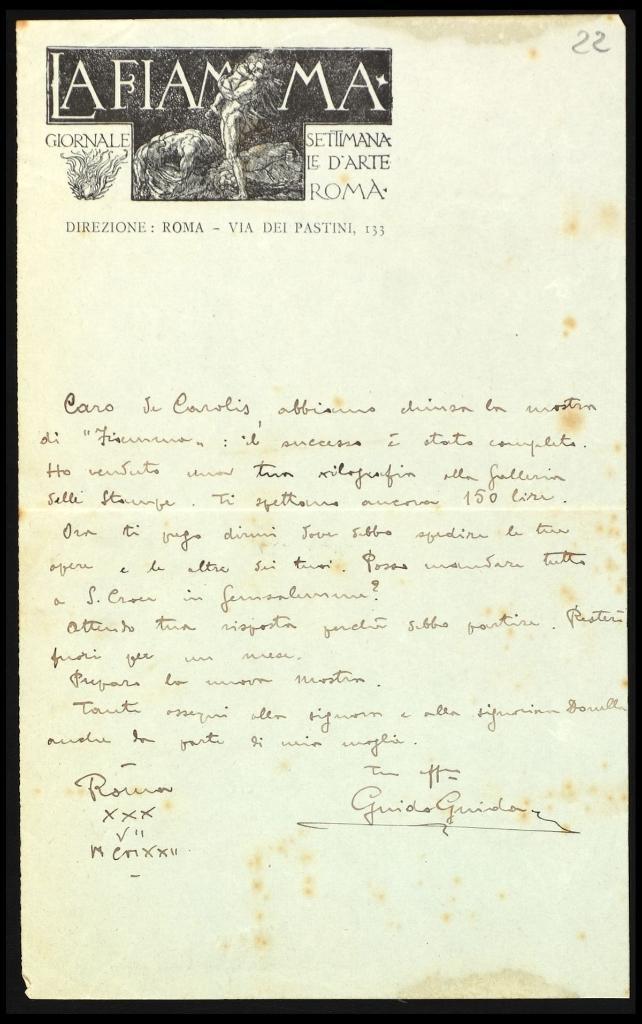 22
LA FIAMMA
GIORNALE SETTIMANA
LE D'ARTE
ROMA
DIREZIONE: ROMA – VIA DEI PASTINI, 133
Caro de Carolis, abbiamo chiusa la mostra
di "Fiamma„ : il successo è stato completo.
Ho venduto una tua xilografia alla Galleria
delle Stampe. Ti spettano ancora 150 lire.
Ora ti prego dirmi dove debbo spedire le tue
opere e le altre dei tuoi. Posso mandare tutto
a S. Croce in Gerusalemme?
Attendo tua risposta perchè debbo partire. Resterò
fuori per un mese.
Preparo la nuova mostra.
Tanti ossequi alla signora e alla signorina Donella
anche da parte di mia moglie.
tuo aff.
Guido Guida
Roma
XXX
VII